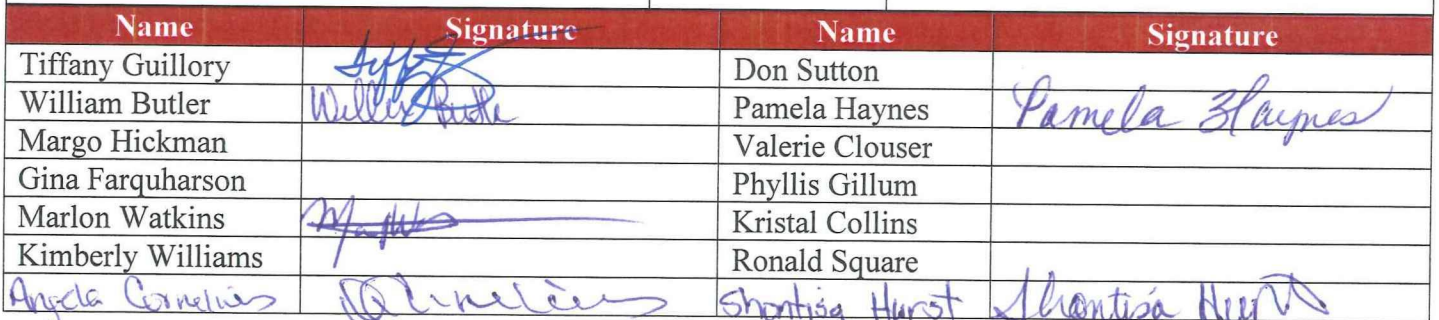 Name Signature Name Signature
Tiffany Guillory Don Sutton
William Butler Pamela Haynes Pamela Haynes
Margo Hickman Valerie Clouser
Gina Farquharson Phyllis Gillum
Marlon Watkins Kristal Collins
Kimberly Williams Ronald Square
Angela Cornelius Shontisa Hurst Shontisa Hurst